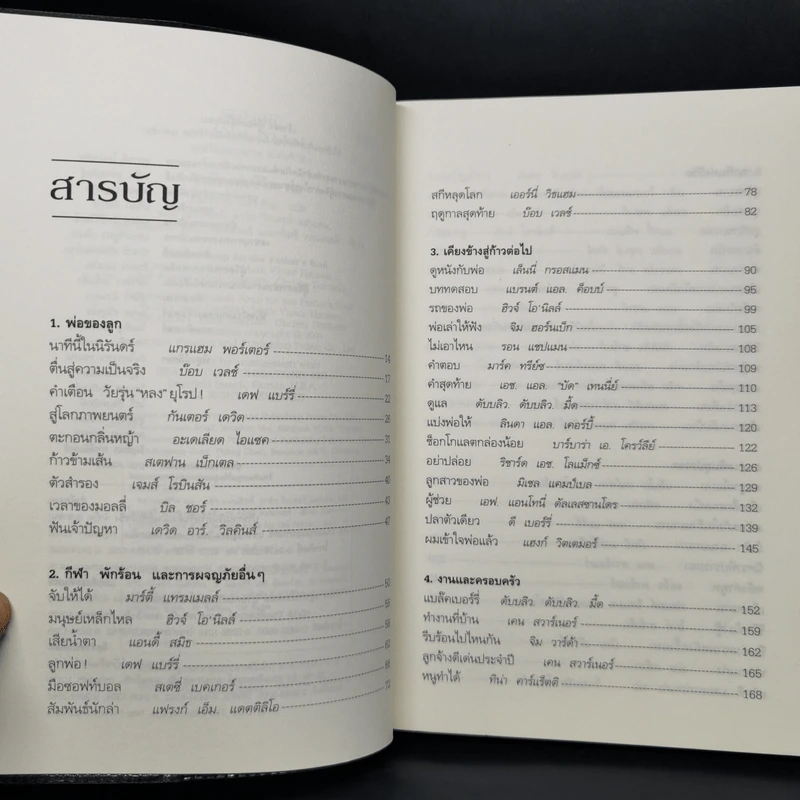 สารบัญ
1. พ่อของลูก
นาทีนี้ในนิรันดร์ แกรแฮม พอร์เตอร์ 14
ตื่นสู่ความเป็นจริง บ๊อบ เวลช์ 17
คำเตือน วัยรุ่น "หลง" ยุโรป ! เดฟ แบร์รี่ 22
สู่โลกภาพยนตร์ กันเตอร์ เดวิด 26
ตะกอนกลิ่นหญ้า อะเดเลียด ไอแซค 31
ก้าวข้ามเส้น สเตฟาน เบ็กเตล 34
ตัวสำรอง เจมส์ โรบินสัน 40
เวลาของมอลลี่ บิล ชอร์ 43
ฟันเจ้าปัญหา เดวิด อาร์. วิลคินส์ 47
2. กีฬา พักร้อน และการผจญภัยอื่นๆ
จับให้ได้ มาร์ตี้ แทรมเมลล์ 50
มนุษย์เหล็กไหล ฮิวจ์ โอ'นิลล์
เสียน้ำตา แอนดี้ สมิธ
ลูกพ่อ ! เดฟ แบร์รี่
มือซอฟท์บอล สเตซี่ เบคเกอร์
สัมพันธ์นักล่า แฟรงก์ เอ็ม. แตตติลิโอ
สกีหลุดโลก เออร์นี่ วิธแฮม 78
ฤดูกาลสุดท้าย บ๊อบ เวลช์ 82
3. เคียงข้างสู่ก้าวต่อไป
ดูหนังกับพ่อ เล็นนี่ กรอสแมน 90
บททดสอบ แบรนต์ แอล. ค็อบบ์ 95
รถของพ่อ ฮิวจ์ โอ'นิลล์ 99
พ่อเล่าให้ฟัง จิม ฮอร์นเบ็ก 105
ไม่เอาไหน รอน แชปแมน 108
คำตอบ มาร์ค ทรีย์ซ 109
คำสุดท้าย เอช. แอล. "บัด" เทนนี่ย์ 110
ดูแล ดับบลิว. ดับบลิว. มี้ด 113
แบ่งพ่อให้ ลินดา แอล. เคอร์บี้ 122
ช็อกโกแลตกล่องน้อย บาร์บาร่า เอ. โครว์ลีย์ 122
อย่าปล่อย ริชาร์ด เอช. โลแม็กซ์ 126
ลูกสาวของพ่อ มิเชล แคมป์เบล 129
ผู้ช่วย เอฟ. แอนโทนี่ ดัลเลสซานโดร 132
ปลาตัวเดียว ดี เบอร์รี่ 139
ผมเข้าใจพ่อแล้ว แฮงก์ วิตเตมอร์ 145
4. งานและครอบครัว
แบล๊คเบอร์รี่ ดับบลิว. ดับบลิว. มี้ด 152
ทำงานที่บ้าน เคน สวาร์เนอร์ 159
รีบร้อนไปไหนกัน จิม วาร์ด้า 162
ลูกจ้างดีเด่นประจำปี เคน สวาร์เนอร์ 165
หนูทำได้ ทิน่า คาร์แร็ตติ 168